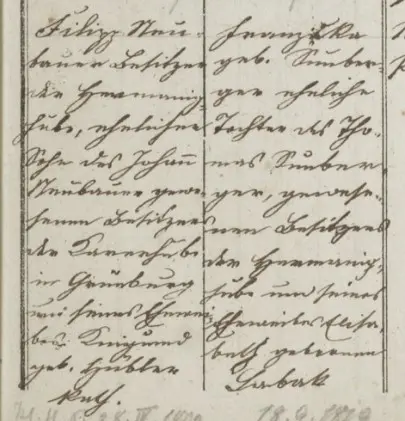 Filipp Neu-
bauer Besitzer
der Hermanig-
hube, ehelicher
Sohn des Johann
Neubauer gewe-
senen Besitzers
der Karrerhube
in Grünburg
und seines Ehewei-
bes Kunigund
geb. Hübler
kath.
Franziska
geb. Sunber-
ger eheliche
Tochter des Tho-
mas Sunber-
ger, gewese-
nen Besitzers
der Hermanig-
hube und seines
Eheweibes Elisa-
beth gebornen
Labak